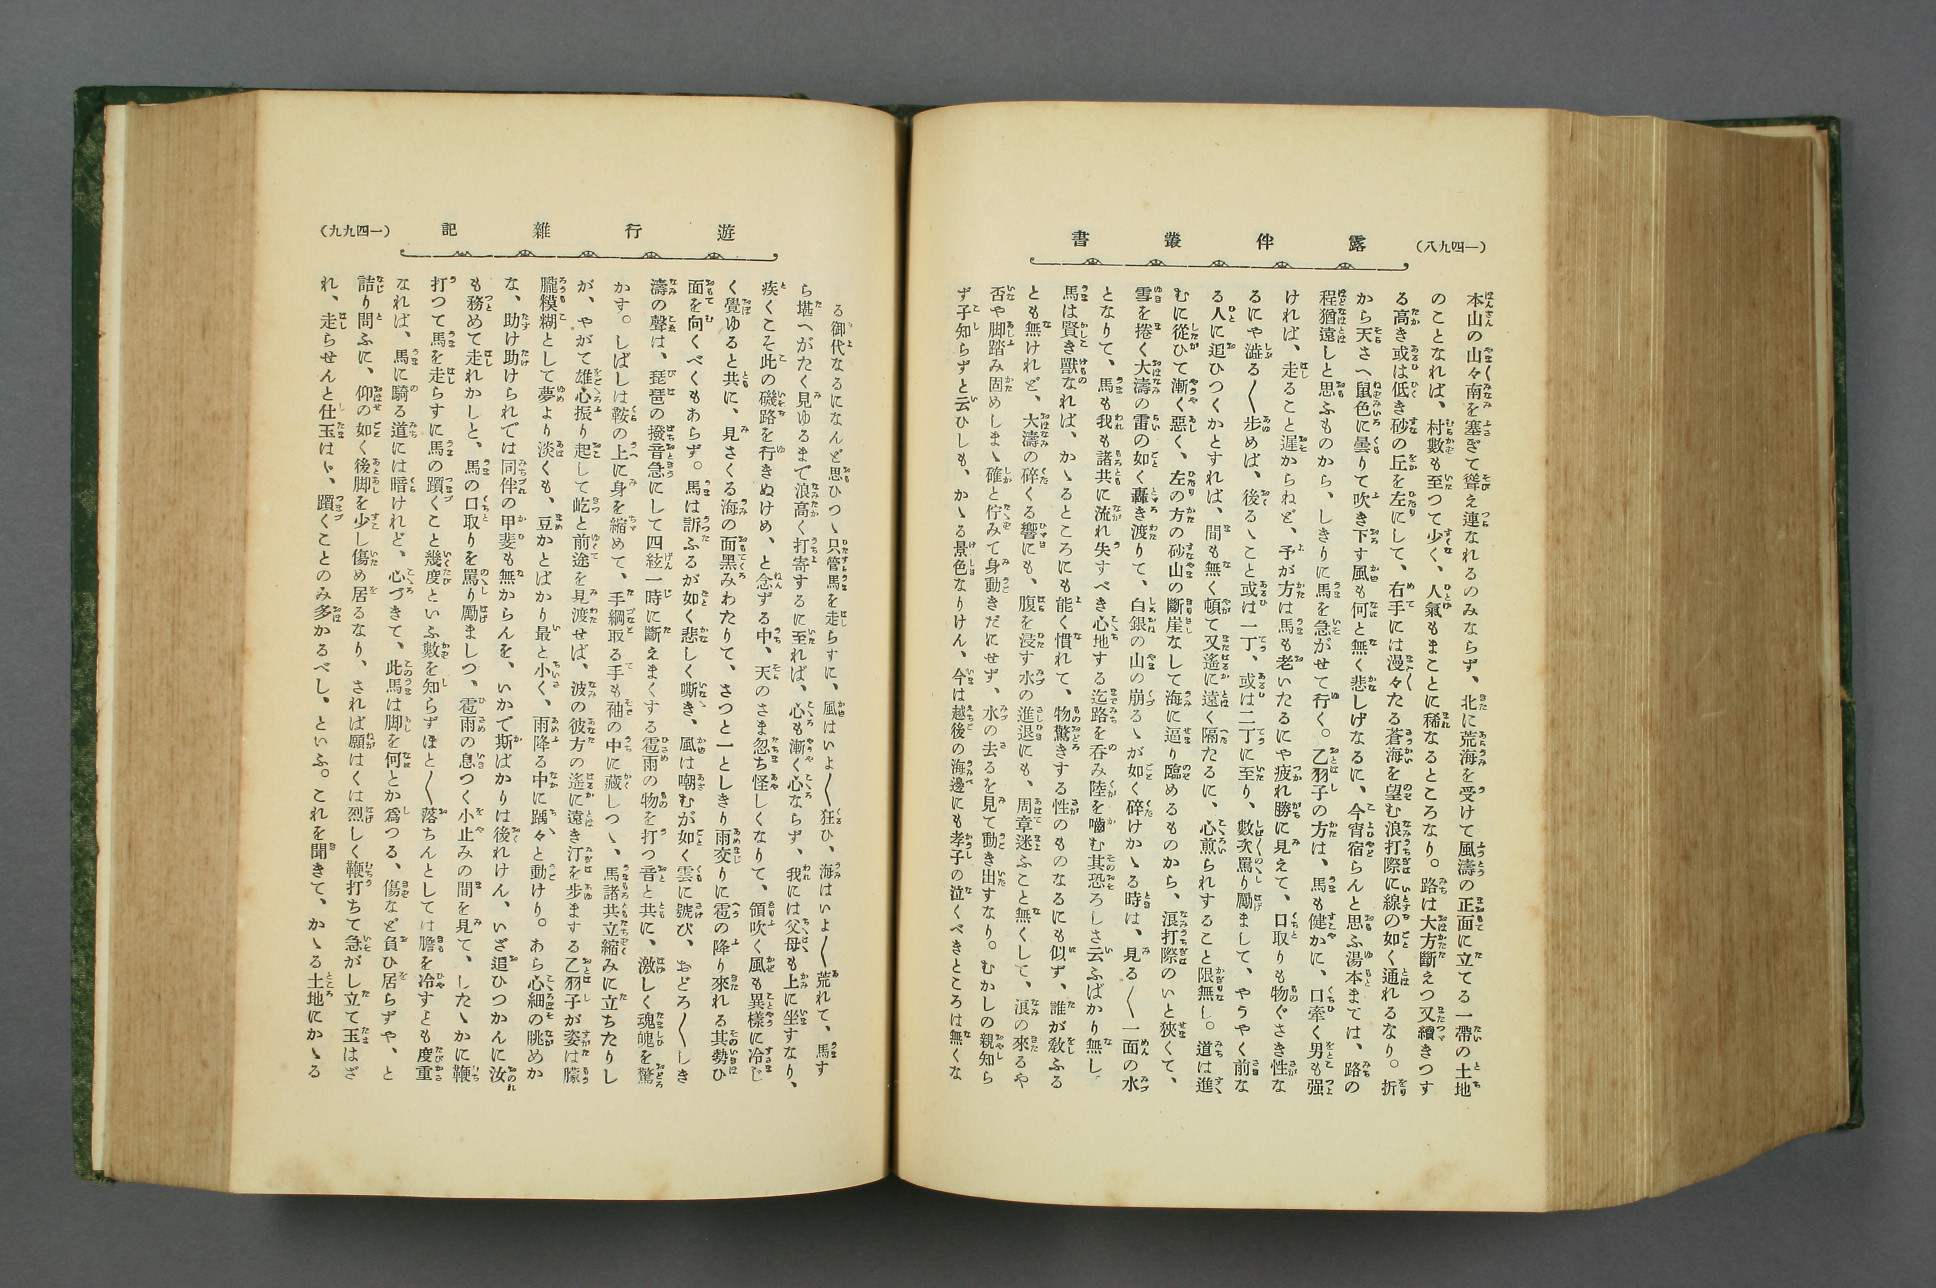 (一四九八)
露伴叢書
本山の山々南を塞ぎて聳え連なれるのみならず、北に荒海を受けて風濤の正面に立てる一帶の土地
のことなれば、村數も至つて少く、人氣もまことに稀なるところなり。路は大方斷えつ又續きつす
る高き或は低き砂の丘を左にして、右手には漫々たる蒼海を望む浪打際に線の如く通れるなり。折
から天さへ鼠色に曇りて吹き下す風も何と無く悲しげなるに、今宵宿らんと思ふ湯本までは、路の
程猶遠しと思ふものから、しきりに馬を急がせて行く。乙羽子の方は、馬も健かに、口牽く男も强
ければ、走ること遲からねど、予が方は馬も老いたるにや疲れ勝に見えて、口取りも物ぐさき性な
るにや澁る〱歩めば、後るゝこと或は一丁、或は二丁に至り、數次罵り勵まして、やうやく前な
る人に追ひつくかとすれば、間も無く頓て又遙に遠く隔たるに、心煎られすること限無し。道は進
むに從ひて漸く惡く、左の方の砂山の斷崖なして海に逼り臨めるものから、浪打際のいと狹くて、
雪を捲く大濤の雷の如く轟き渡りて、白銀の山の崩るゝが如く碎けかゝる時は、見る〱一面の水
となりて、馬も我も諸共に流れ失すべき心地する迄路を呑み陸を嚙む其恐ろしさ云ふばかり無し。
馬は賢き獸なれば、かゝるところにも能く慣れて、物驚きする性のものなるにも似ず、誰が敎ふる
とも無けれど、大濤の碎くる響にも、腹を浸す水の進退にも、周章迷ふこと無くして、浪の來るや
否や脚踏み固めしまゝ確と佇みて身動きだにせず、水の去るを見て動き出すなり。むかしの親知ら
ず子知らずと云ひしも、かゝる景色なりけん、今は越後の海邊にも孝子の泣くべきところは無くな
遊行雜記
(一四九九)
る御代なるになんど思ひつゝ只管馬を走らすに、風はいよ〱狂ひ、海はいよ〱荒れて、馬す
ら堪へがたく見ゆるまで浪高く打寄するに至れば、心も漸く心ならず、我には父母も上に坐すなり、
疾くこそ此の磯路を行きぬけめ、と念ずる中、天のさま忽ち怪しくなりて、領吹く風も異樣に冷じ
く覺ゆると共に、見さくる海の面黑みわたりて、さつと一としきり雨交りに雹の降り來れる其勢ひ
面を向くべくもあらず。馬は訴ふるが如く悲しく嘶き、風は嘲むが如く雲に號び、おどろ〱しき
濤の聲は、琵琶の撥音急にして四絃一時に斷えまくする雹雨の物を打つ音と共に、激しく魂魄を驚
かす。しばしは鞍の上に身を縮めて、手綱取る手も袖の中に藏しつゝ、馬諸共立縮みに立ちたりし
が、やがて雄心振り起して屹と前途を見渡せば、波の彼方の遙に遠き汀を歩まする乙羽子が姿は朦
朧糢糊として夢より淡くも、豆かとばかり最と小く、雨降る中に踽々と動けり。あら心細の眺めか
な、助け助けられでは同伴の甲斐も無からんを、いかで斯ばかりは後れけん、いざ追ひつかんに汝
も務めて走れかしと、馬の口取りを罵り勵ましつ、雹雨の息つく小止みの間を見て、したゝかに鞭
打つて馬を走らすに馬の躓くこと幾度といふ數を知らずほと〱落ちんとしては膽を冷すとも度重
なれば、馬に騎る道には暗けれど、心づきて、此馬は脚を何とか爲つる、傷など負ひ居らずや、と
詰り問ふに、仰の如く後脚を少し傷め居るなり、されば願はくは烈しく鞭打ちて急がし立て玉はざ
れ、走らせんと仕玉はゞ、躓くことのみ多かるべし、といふ。これを聞きて、かゝる土地にかゝる